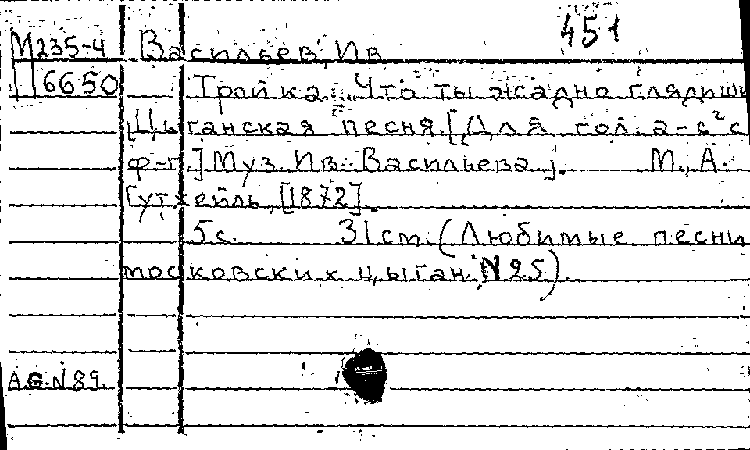 451
М235-4 Васильев, Ив.
6650 Тройка. Что ты жадно глядишь
Цыганская песня. [Для гол. а-с²с
ф-п.] Муз. Ив. Васильева. М., А.
Гутхейль, [1872].
5с. 31см. (Любимые песни
московских цыган. N 25).
A.G.N 89.